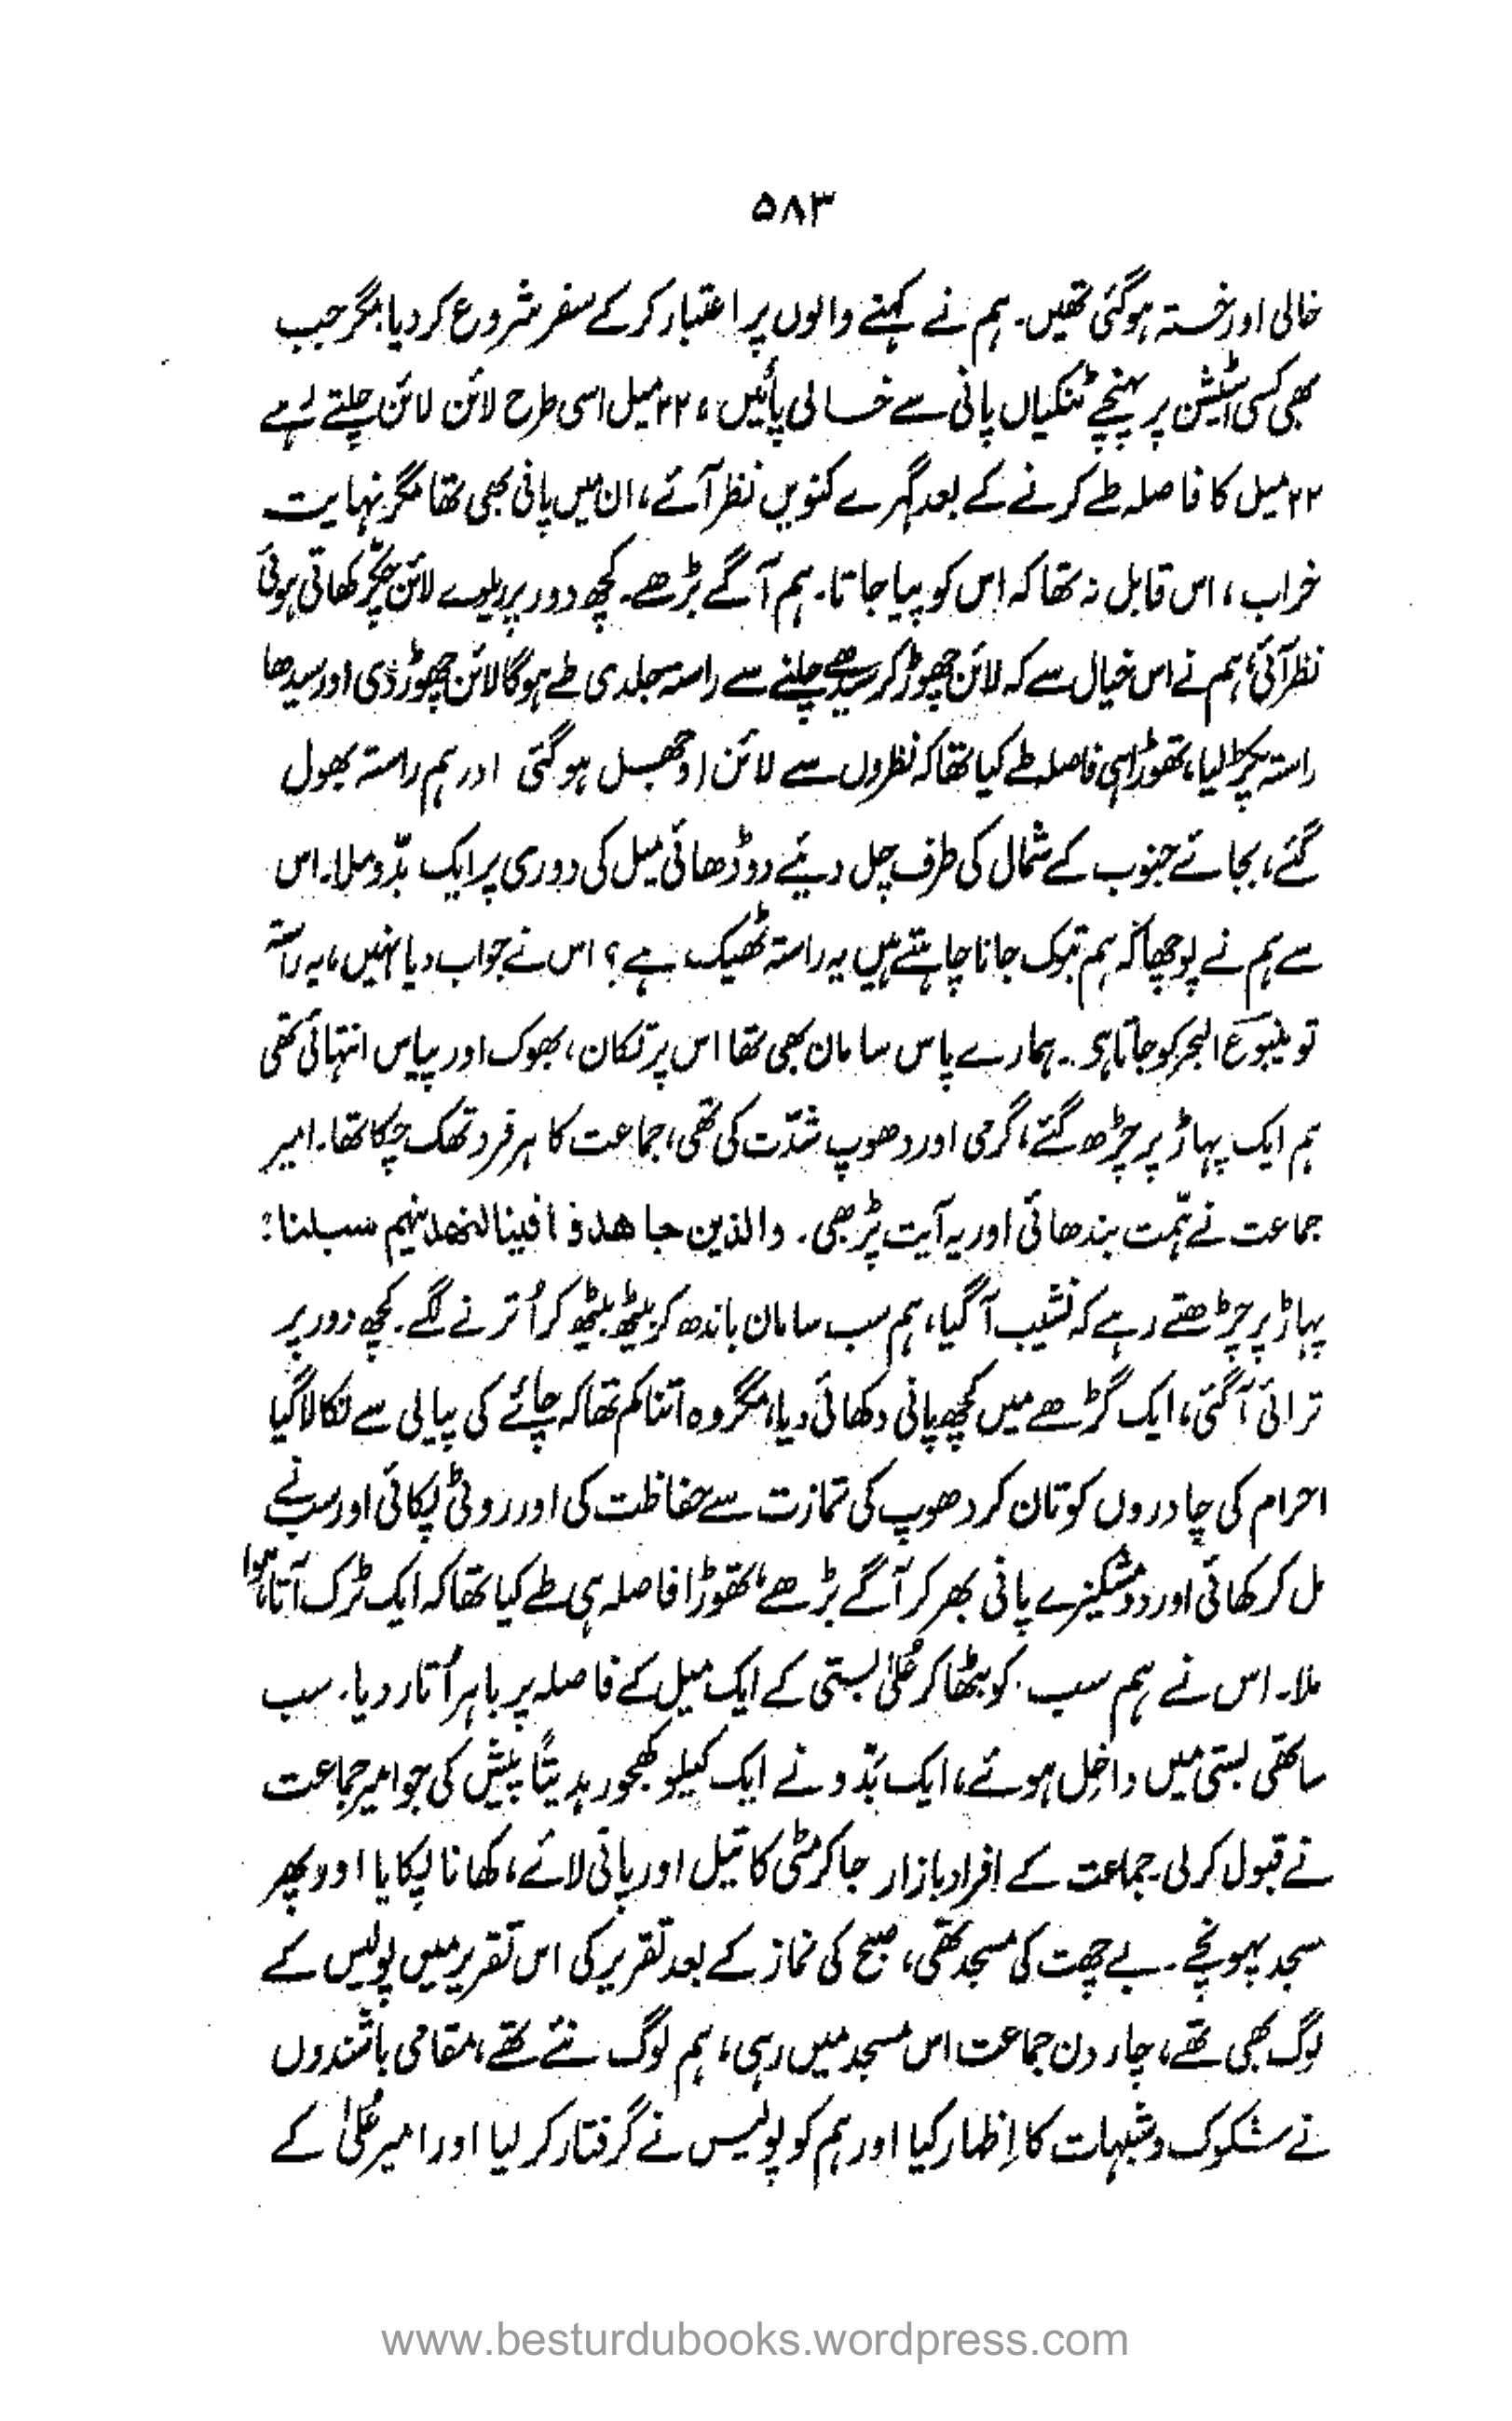 ۵۸۳
خالی اور خستہ ہوگئی تھیں۔ ہم نے کہنے والوں پر اعتبار کر کے سفر شروع کر دیا، مگر جب
بھی کسی اسٹیشن پر پہنچے ٹنکیاں پانی سے خالی پائیں، ۲۲ میل اسی طرح لائن لائن چلتے رہے
۲۲ میل کا فاصلہ طے کرنے کے بعد گہرے کنویں نظر آئے، ان میں پانی بھی تھا مگر نہایت
خراب، اس قابل نہ تھا کہ اس کو پیا جاتا۔ ہم آگے بڑھے۔ کچھ دور پر ریلوے لائن چکّر کھاتی ہوئی
نظر آئی، ہم نے اس خیال سے کہ لائن چھوڑ کر سیدھے چلنے سے راستہ جلدی طے ہوگا لائن چھوڑ دی اور سیدھا
راستہ پکڑ لیا، تھوڑا ہی فاصلہ طے کیا تھا کہ نظروں سے لائن اوجھل ہوگئی اور ہم راستہ بھول
گئے، بجائے جنوب کے شمال کی طرف چل دیئے دو ڈھائی میل کی دوری پر ایک بدّو ملا۔ اس
سے ہم نے پوچھا کہ ہم تبوک جانا چاہتے ہیں یہ راستہ ٹھیک ہے؟ اس نے جواب دیا نہیں، یہ راستہ
تو ینبوع البحر کو جاتا ہی۔ ہمارے پاس سامان بھی تھا اس پر تکان، بھوک اور پیاس انتہائی تھی
ہم ایک پہاڑ پر چڑھ گئے، گرمی اور دھوپ شدّت کی تھی، جماعت کا ہر فرد تھک چکا تھا۔ امیر
جماعت نے ہمّت بندھائی اور یہ آیت پڑھی۔ والذین جاھدوا فینا لنھدینھم سبلنا؛
پہاڑ پر چڑھتے رہے کہ نشیب آگیا، ہم سب سامان باندھ کر بیٹھ بیٹھ کر اُترنے لگے۔ کچھ دور پر
ترائی آگئی، ایک گڑھے میں کچھ پانی دکھائی دیا، مگر وہ اتنا کم تھا کہ چائے کی پیالی سے نکالا گیا
احرام کی چادروں کو تان کر دھوپ کی تمازت سے حفاظت کی اور روٹی پکائی اور سب نے
مل کر کھائی اور دو مشکیزے پانی بھر کر آگے بڑھے، تھوڑا فاصلہ ہی طے کیا تھا کہ ایک ٹرک آتا ہوا
ملا۔ اس نے ہم سب کو بٹھا کر عُلیٰ بستی کے ایک میل کے فاصلہ پر باہر اُتار دیا۔ سب
ساتھی بستی میں داخل ہوئے، ایک بدّو نے ایک کیلو کھجور ہدیتاً پیش کی جو امیر جماعت
نے قبول کر لی۔ جماعت کے افراد بازار جا کر مٹی کا تیل اور پانی لائے، کھانا پکایا اور پھر
مسجد پہونچے۔ بے چھت کی مسجد تھی، صبح کی نماز کے بعد تقریر کی اس تقریر میں پولیس کے
لوگ بھی تھے، چار دن جماعت اس مسجد میں رہی، ہم لوگ نئے تھے، مقامی باشندوں
نے شکوک و شبہات کا اِظہار کیا اور ہم کو پولیس نے گرفتار کر لیا اور امیر عُلیٰ کے
www.besturdubooks.wordpress.com